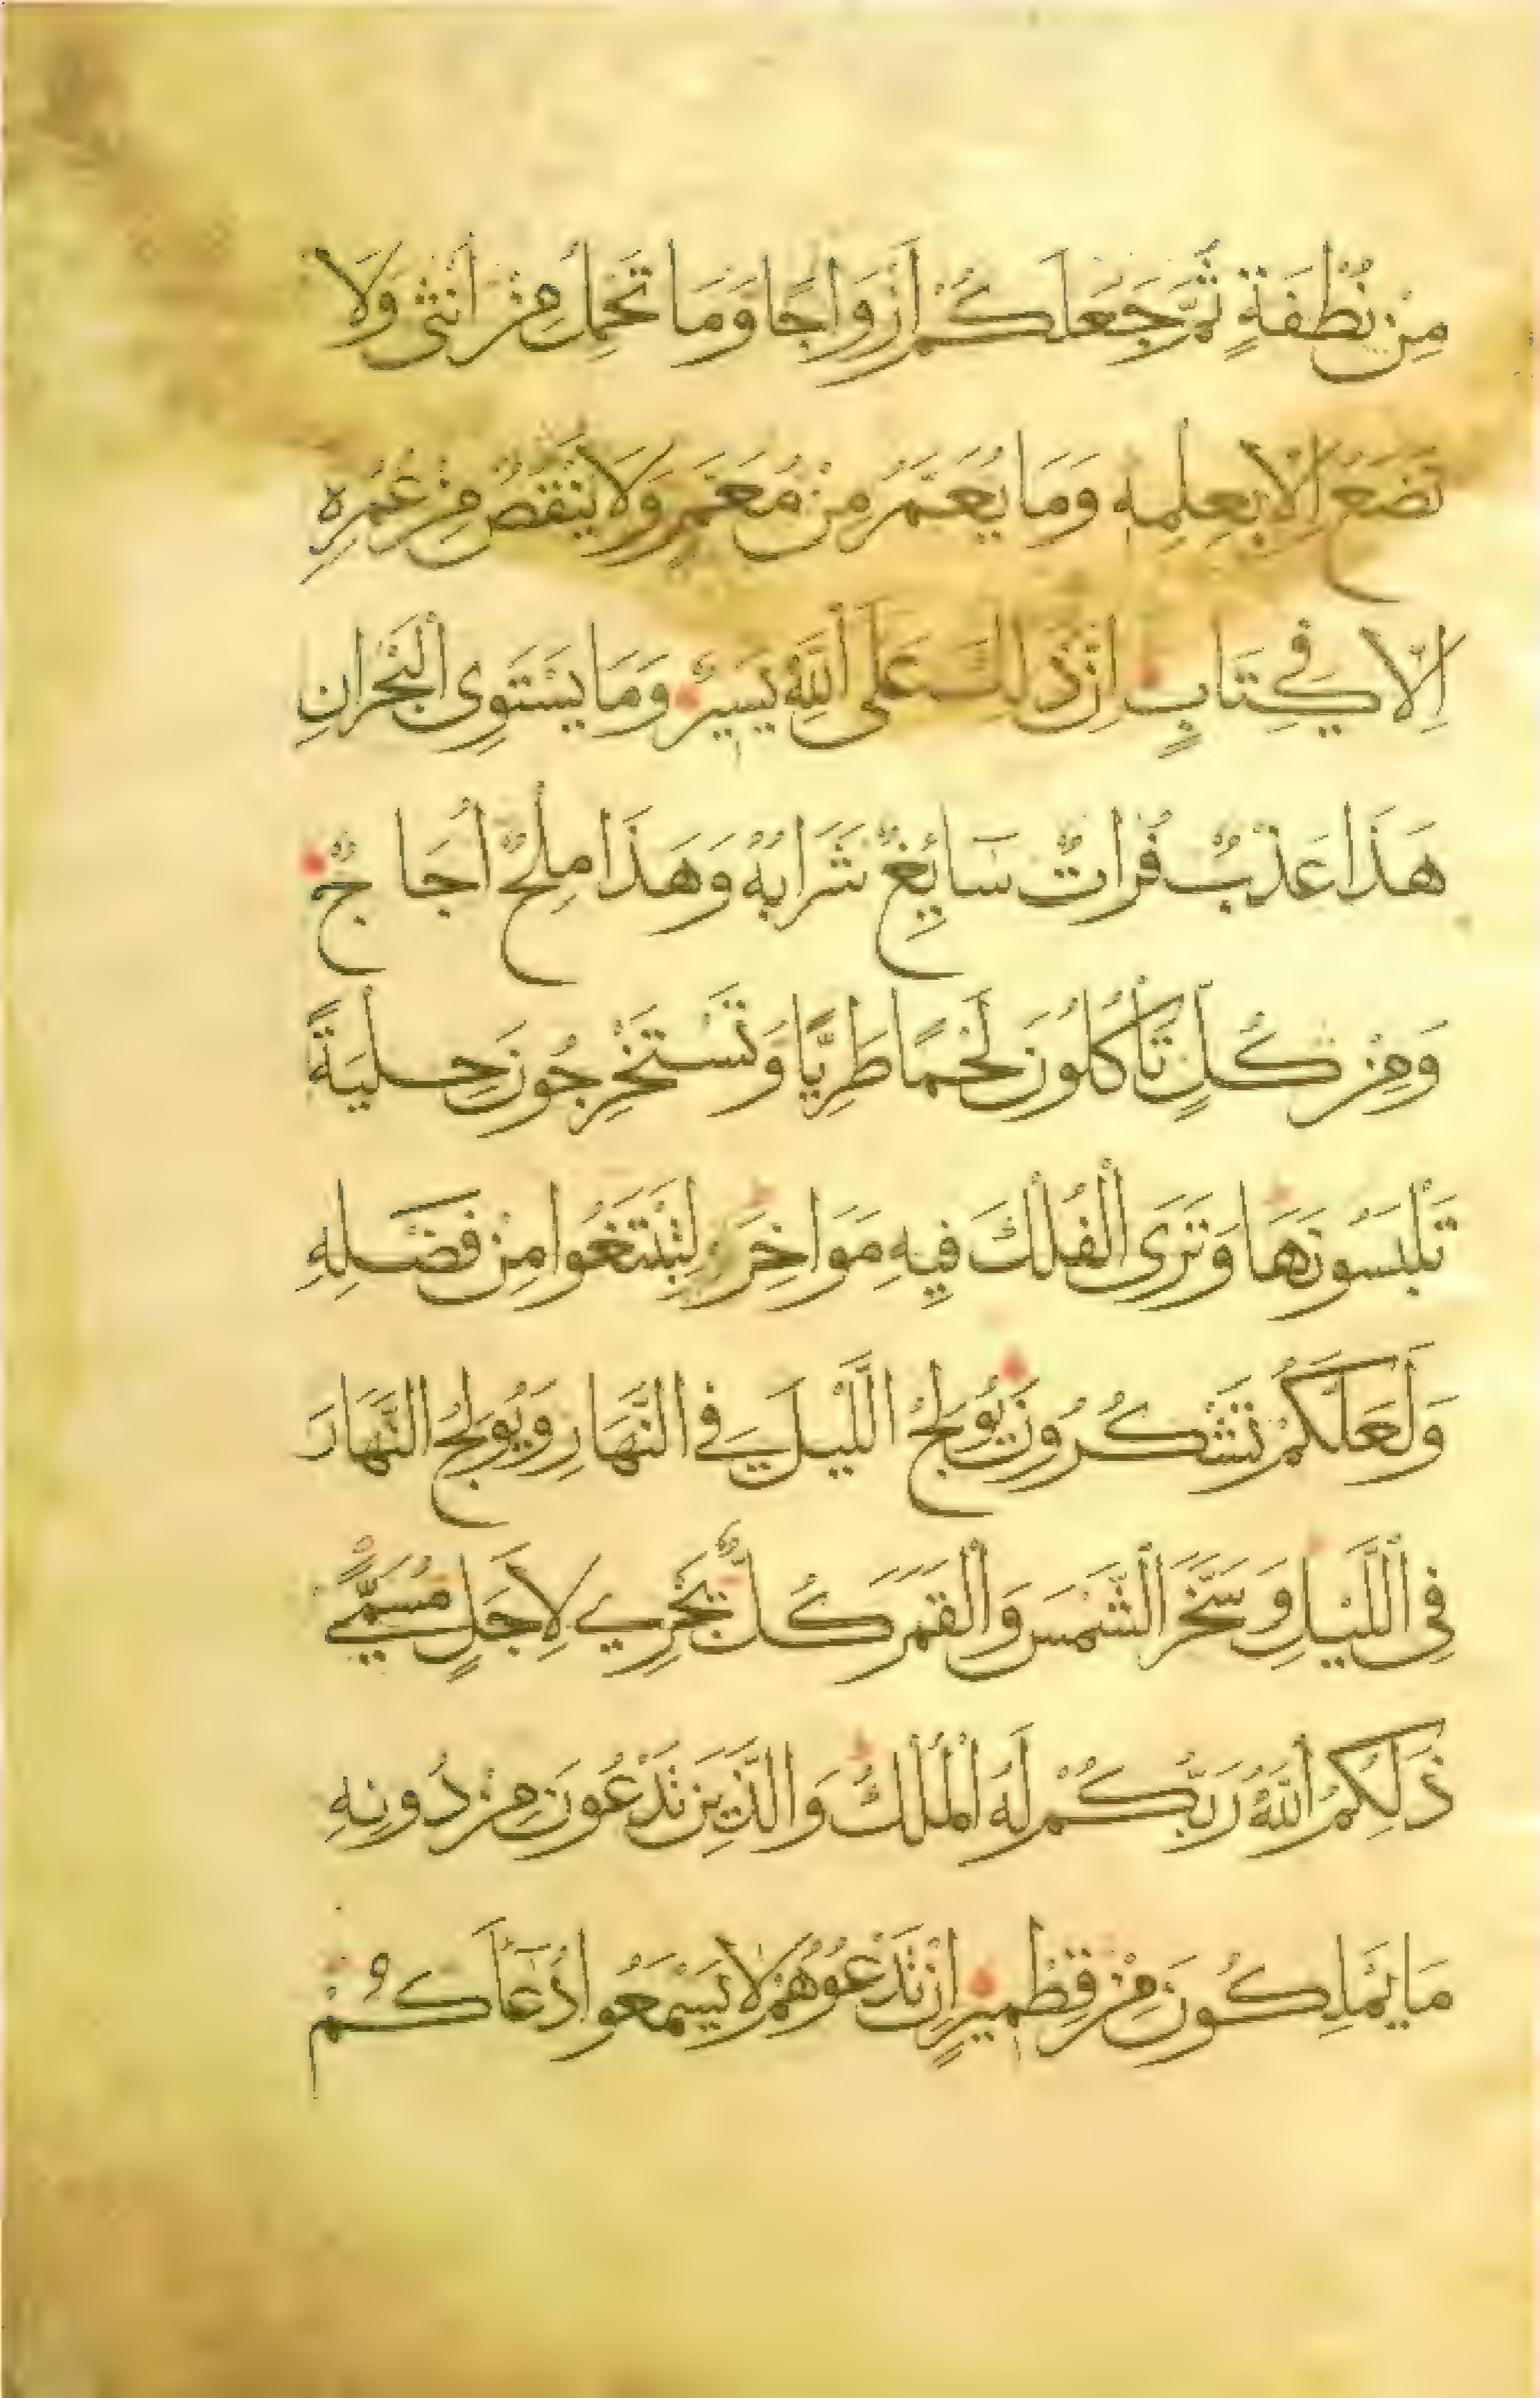 مِنْ نُطْفَةٍ ثُمَّ جَعَلَكُمْ أَزْوَاجًا وَمَا تَحْمِلُ مِنْ أُنْثَى وَلَا
تَضَعُ إِلَّا بِعِلْمِهِ وَمَا يُعَمَّرُ مِنْ مُعَمَّرٍ وَلَا يُنْقَصُ مِنْ عُمُرِهِ
إِلَّا فِي كِتَابٍ إِنَّ ذَلِكَ عَلَى اللَّهِ يَسِيرٌ وَمَا يَسْتَوِي الْبَحْرَانِ
هَذَا عَذْبٌ فُرَاتٌ سَايِغٌ شَرَابُهُ وَهَذَا مِلْحٌ أُجَاجٌ
وَمِنْ كُلٍّ تَأْكُلُونَ لَحْمًا طَرِيًّا وَتَسْتَخْرِجُونَ حِلْيَةً
تَلْبَسُونَهَا وَتَرَى الْفُلْكَ فِيهِ مَوَاخِرَ لِتَبْتَغُوا مِنْ فَضْلِهِ
وَلَعَلَّكُمْ تَشْكُرُونَ يُولِجُ اللَّيْلَ فِي النَّهَارِ وَيُولِجُ النَّهَارَ
فِي اللَّيْلِ وَسَخَّرَ الشَّمْسَ وَالْقَمَرَ كُلٌّ يَجْرِي لِأَجَلٍ مُسَمًّى
ذَلِكُمُ اللَّهُ رَبُّكُمْ لَهُ الْمُلْكُ وَالَّذِينَ تَدْعُونَ مِنْ دُونِهِ
مَا يَمْلِكُونَ مِنْ قِطْمِيرٍ إِنْ تَدْعُوهُمْ لَا يَسْمَعُوا دُعَاكُمْ